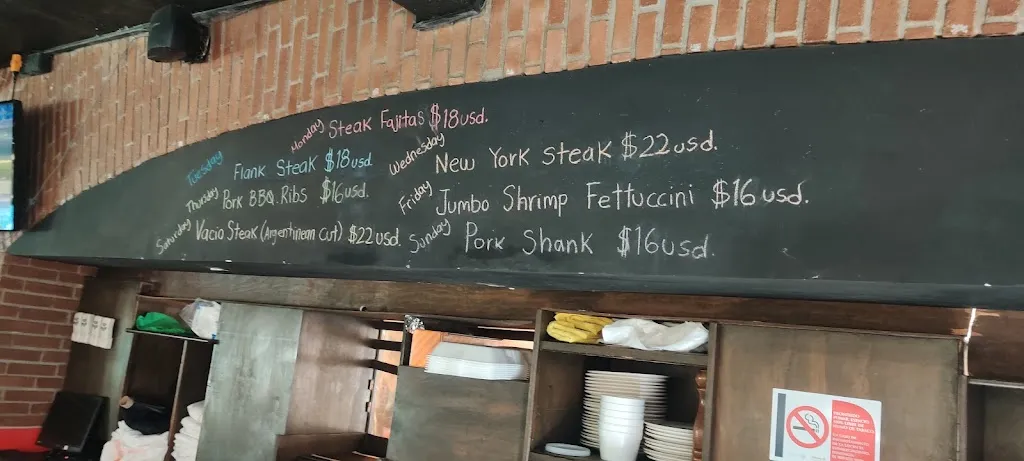 Monday Steak Fajitas $18usd.
Tuesday Flank Steak $18usd
Wednesday New York Steak $22usd.
Thursday Pork BBQ. Ribs $16usd.
Friday Jumbo Shrimp Fettuccini $16usd.
Saturday Vacio Steak (Argentinean cut) $22usd.
Sunday Pork Shank $16usd.